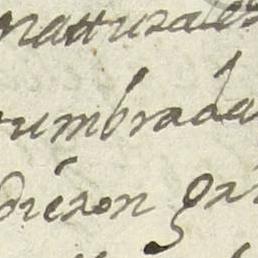 natturales
tumbrada
dieron gra